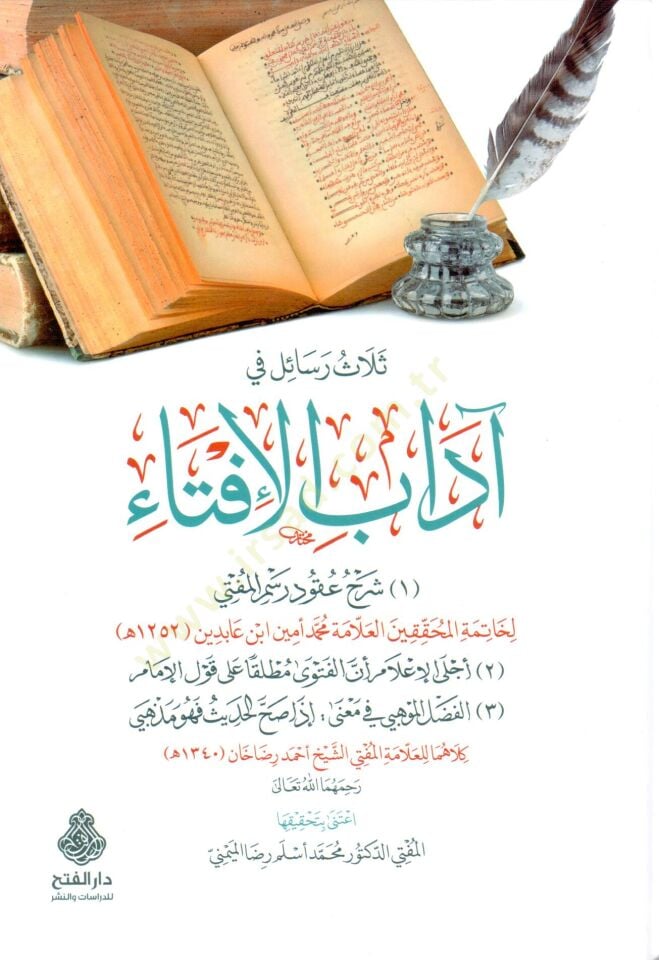 ثَلَاثُ رَسَائِل في
آدَابِ الإِفْتَاءِ
(١) شَرْحُ عُقُود رَسْمِ المُفْتِي
لِخَاتِمَةِ المُحَقِّقِينَ العَلَّامَة مُحَمَّد أَمِين ابْن عَابِدِين (١٢٥٢هـ)
(٢) أَجْلَى الإِعْلَام أَنَّ الفَتْوَى مُطْلَقًا عَلَى قَوْلِ الإِمَام
(٣) الفَضْل المَوْهِبِي فِي مَعْنَى: إِذَا صَحَّ الحَدِيثُ فَهُوَ مَذْهَبِي
كِلَاهُمَا لِلعَلَّامَةِ المُفْتِي الشَّيْخ أَحْمَد رِضَا خَان (١٣٤٠هـ)
رَحِمَهُمَا اللهُ تَعَالَى
اعْتَنَى بِتَحْقِيقِهَا
المُفْتِي الدُّكْتُور مُحَمَّد أَسْلَم رِضَا المَيْمَنِيّ
دار الفتح
للدراسات والنشر
www.irsad.com.tr